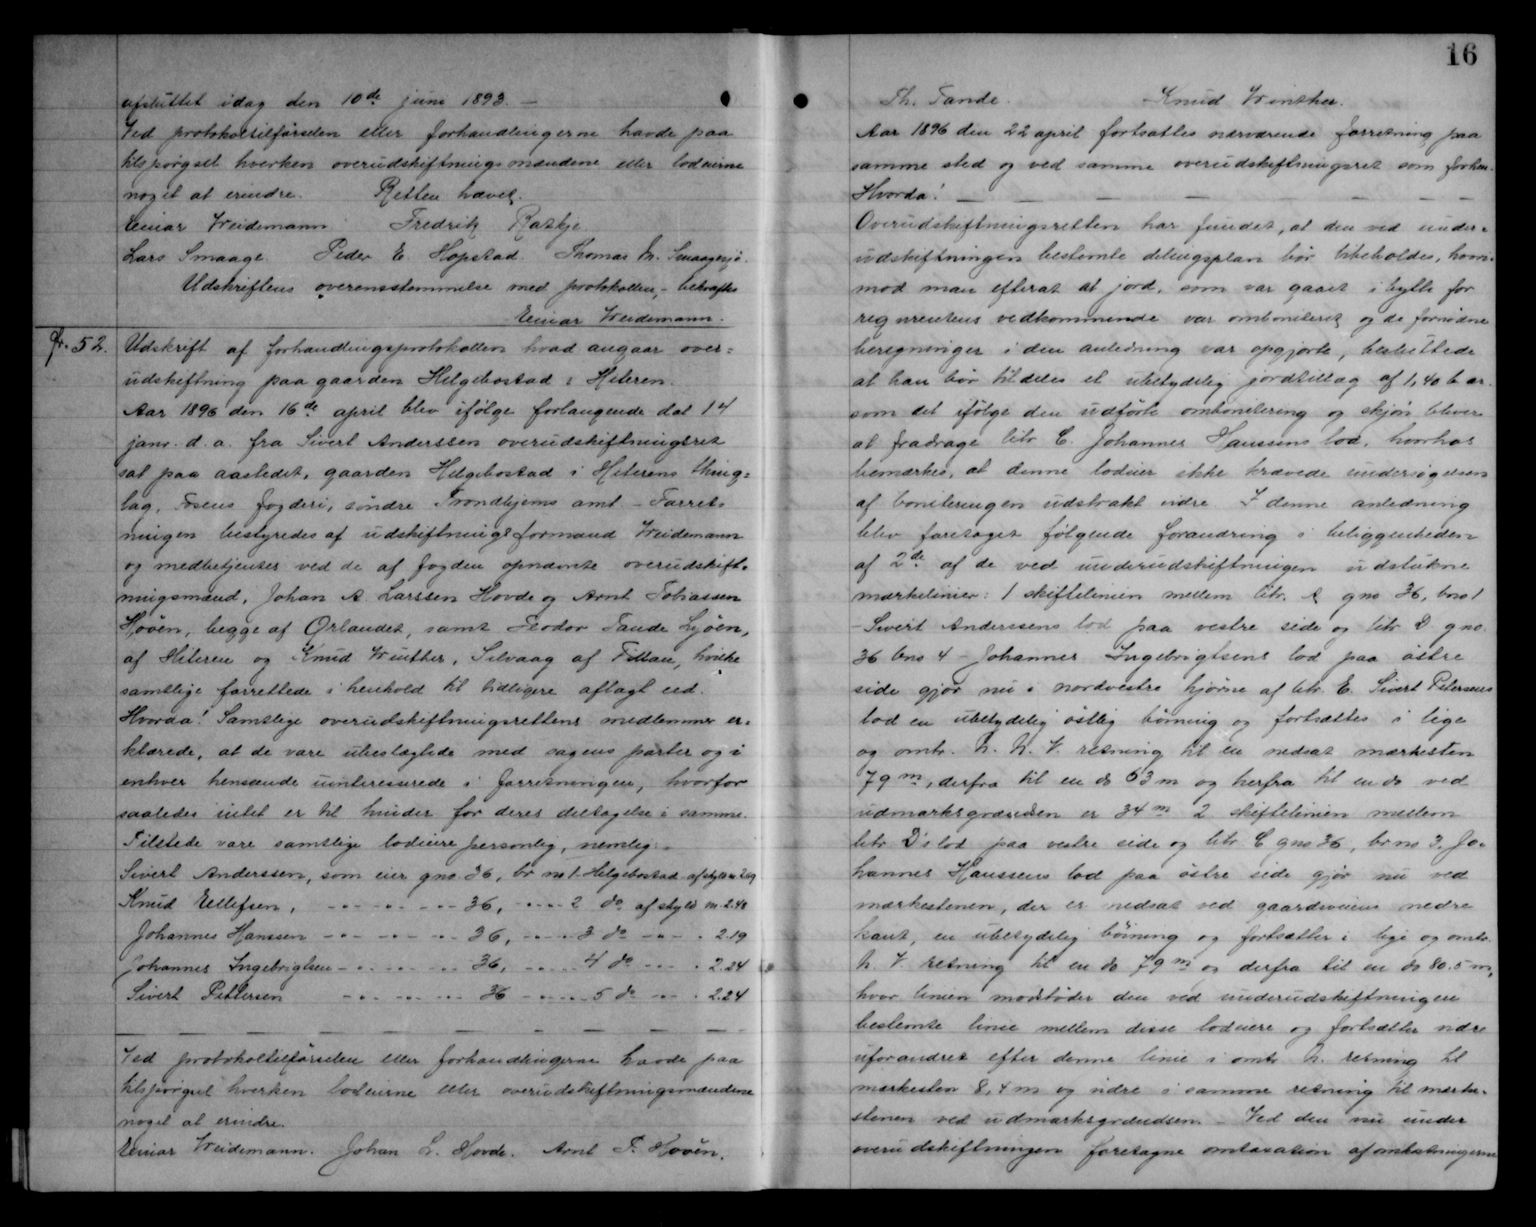 afsluttet idag den 10de juni 1893. —
Ved protokoltilførselen eller forhandlingerne havde paa
tilspørgsel hverken overudskiftningsmændene eller lodeierne
noget at erindre. Retten hævet.
Einar Weidemann Fredrik Raskje
Lars Smaage. Peder E. Hopstad. Thomas M. Smaagesjø.
Udskriftens overensstemmelse med protokollen, bekræftes
Einar Weidemann.
Nr. 52. Udskrift af forhandlingsprotokollen hvad angaar over-
udskiftning paa gaarden Helgebostad i Hiteren.
Aar 1896 den 16de april blev ifølge forlangende dat 14
janr. d. a. fra Sivert Anderssen overudskiftningsret
sat paa aastedet, gaarden Helgebostad i Hiterens thing-
lag, Fosens fogderi, søndre Trondhjems amt. - Forret-
ningen bestyredes af udskiftningsformand Weidemann
og medbetjentes ved de af fogden opnævnte overudskift-
ningsmænd, Johan A. Larssen Hovde og Arnt Tobiassen
Hovén, begge af Ørlandet, samt Teodor Tande Lyøen,
af Hiteren og Knud Winther, Selvaag af Fillan, hvilke
samtlige forrettede i henhold til tidligere aflagt ed.
Hvorda! Samtlige overudskiftningsrettens medlemmer er-
klærede, at de vare ubeslægtede med sagens parter og i
enhver henseende uinteresserede i forretningen, hvorfor
saaledes intet er til hinder for deres deltagelse i samme.
Tilstede vare samtlige lodeiere personlig, nemlig:
Sivert Anderssen, som eier gno. 36, br no 1. Helgebostad af skyld m 2.19
Knud Ellefsen, - - - - - 36, - - - 2 do af skyld m. 2.40
Johannes Hanssen - - - - - 36, - - - 3 do - - . 2.19
Johannes Ingebrigtsen - - - - - 36, - - - 4 do - - . 2.24
Sivert Pettersen - - - - - 36 - - - 5 do - - . 2.24
Ved protokoltilførselen eller forhandlingerne havde paa
tilspørgsel hverken lodeierne eller overudskiftningsmændene
noget at erindre.
Einar Weidemann. Johan L. Hovde. Arnt T. Hovén.
16
Th. Tande. Knud Winther.
Aar 1896 den 22 april fortsattes nærværende forretning paa
samme sted og ved samme overudskiftningsret som forhen.
Hvorda! — — — — — — —
Overudskiftningsretten har fundet, at den ved under-
udskiftningen bestemte delingsplan bør bibeholdes, hvor-
mod man efterat at jord, som var gaaet i bytte for
requirentens vedkommende var omboniteret og de fornødne
beregninger i den anledning var opgjorte, besluttede
at han bør tildeles et ubetydelig jordtillæg af 1,406 ar.
som det ifølge den udførte ombonitering og skjøn bliver
at fradrage litr C. Johannes Hanssens lod, hvorhos
bemærkes, at denne lodeier ikke krævede undersøgelsen
af boniteringen udstrakt videre I denne anledning
blev foretaget følgende forandring i beliggenheden
af 2de af de ved underudskiftningen udstukne
mærkelinier: 1 skiftelinien mellem litr. A gno 36, bno 1
- Sivert Anderssens lod paa vestre side og litr D gno.
36 bno 4 - Johannes Ingebrigtsens lod paa østre
side gjør nu i nordvestre hjørne af litr. E. Sivert Petersens
lod en ubetydelig østlig bøining og fortsættes i lige
og omtr. N. N. V. retning til en nedsat mærkesten
79 m, derfra til en do 63 m og herfra til en do ved
udmarksgrændsen er 34 m 2 skiftelinien mellem
litr D's lod paa vestre side og litr C gno 36, br no 3. Jo-
hannes Hanssens lod paa østre side gjør nu ved
mærkestenen, der er nedsat ved gaardsveiens nedre
kant, en ubetydelig bøining og fortsætter i lige og omtr.
N. V. retning til en do 79 m og derfra til en do 80.5 m,
hvor linien modstøder den ved underudskiftningen
bestemte linie mellem disse lodeiere og fortsætter videre
uforandret efter denne linie i omtr N. retning til
mærkesten 8,4 m og videre i samme retning til mærke-
stenen ved udmarksgrændsen. - Ved den nu under
overudskiftningen foretagne omtaxation af omkostningerne